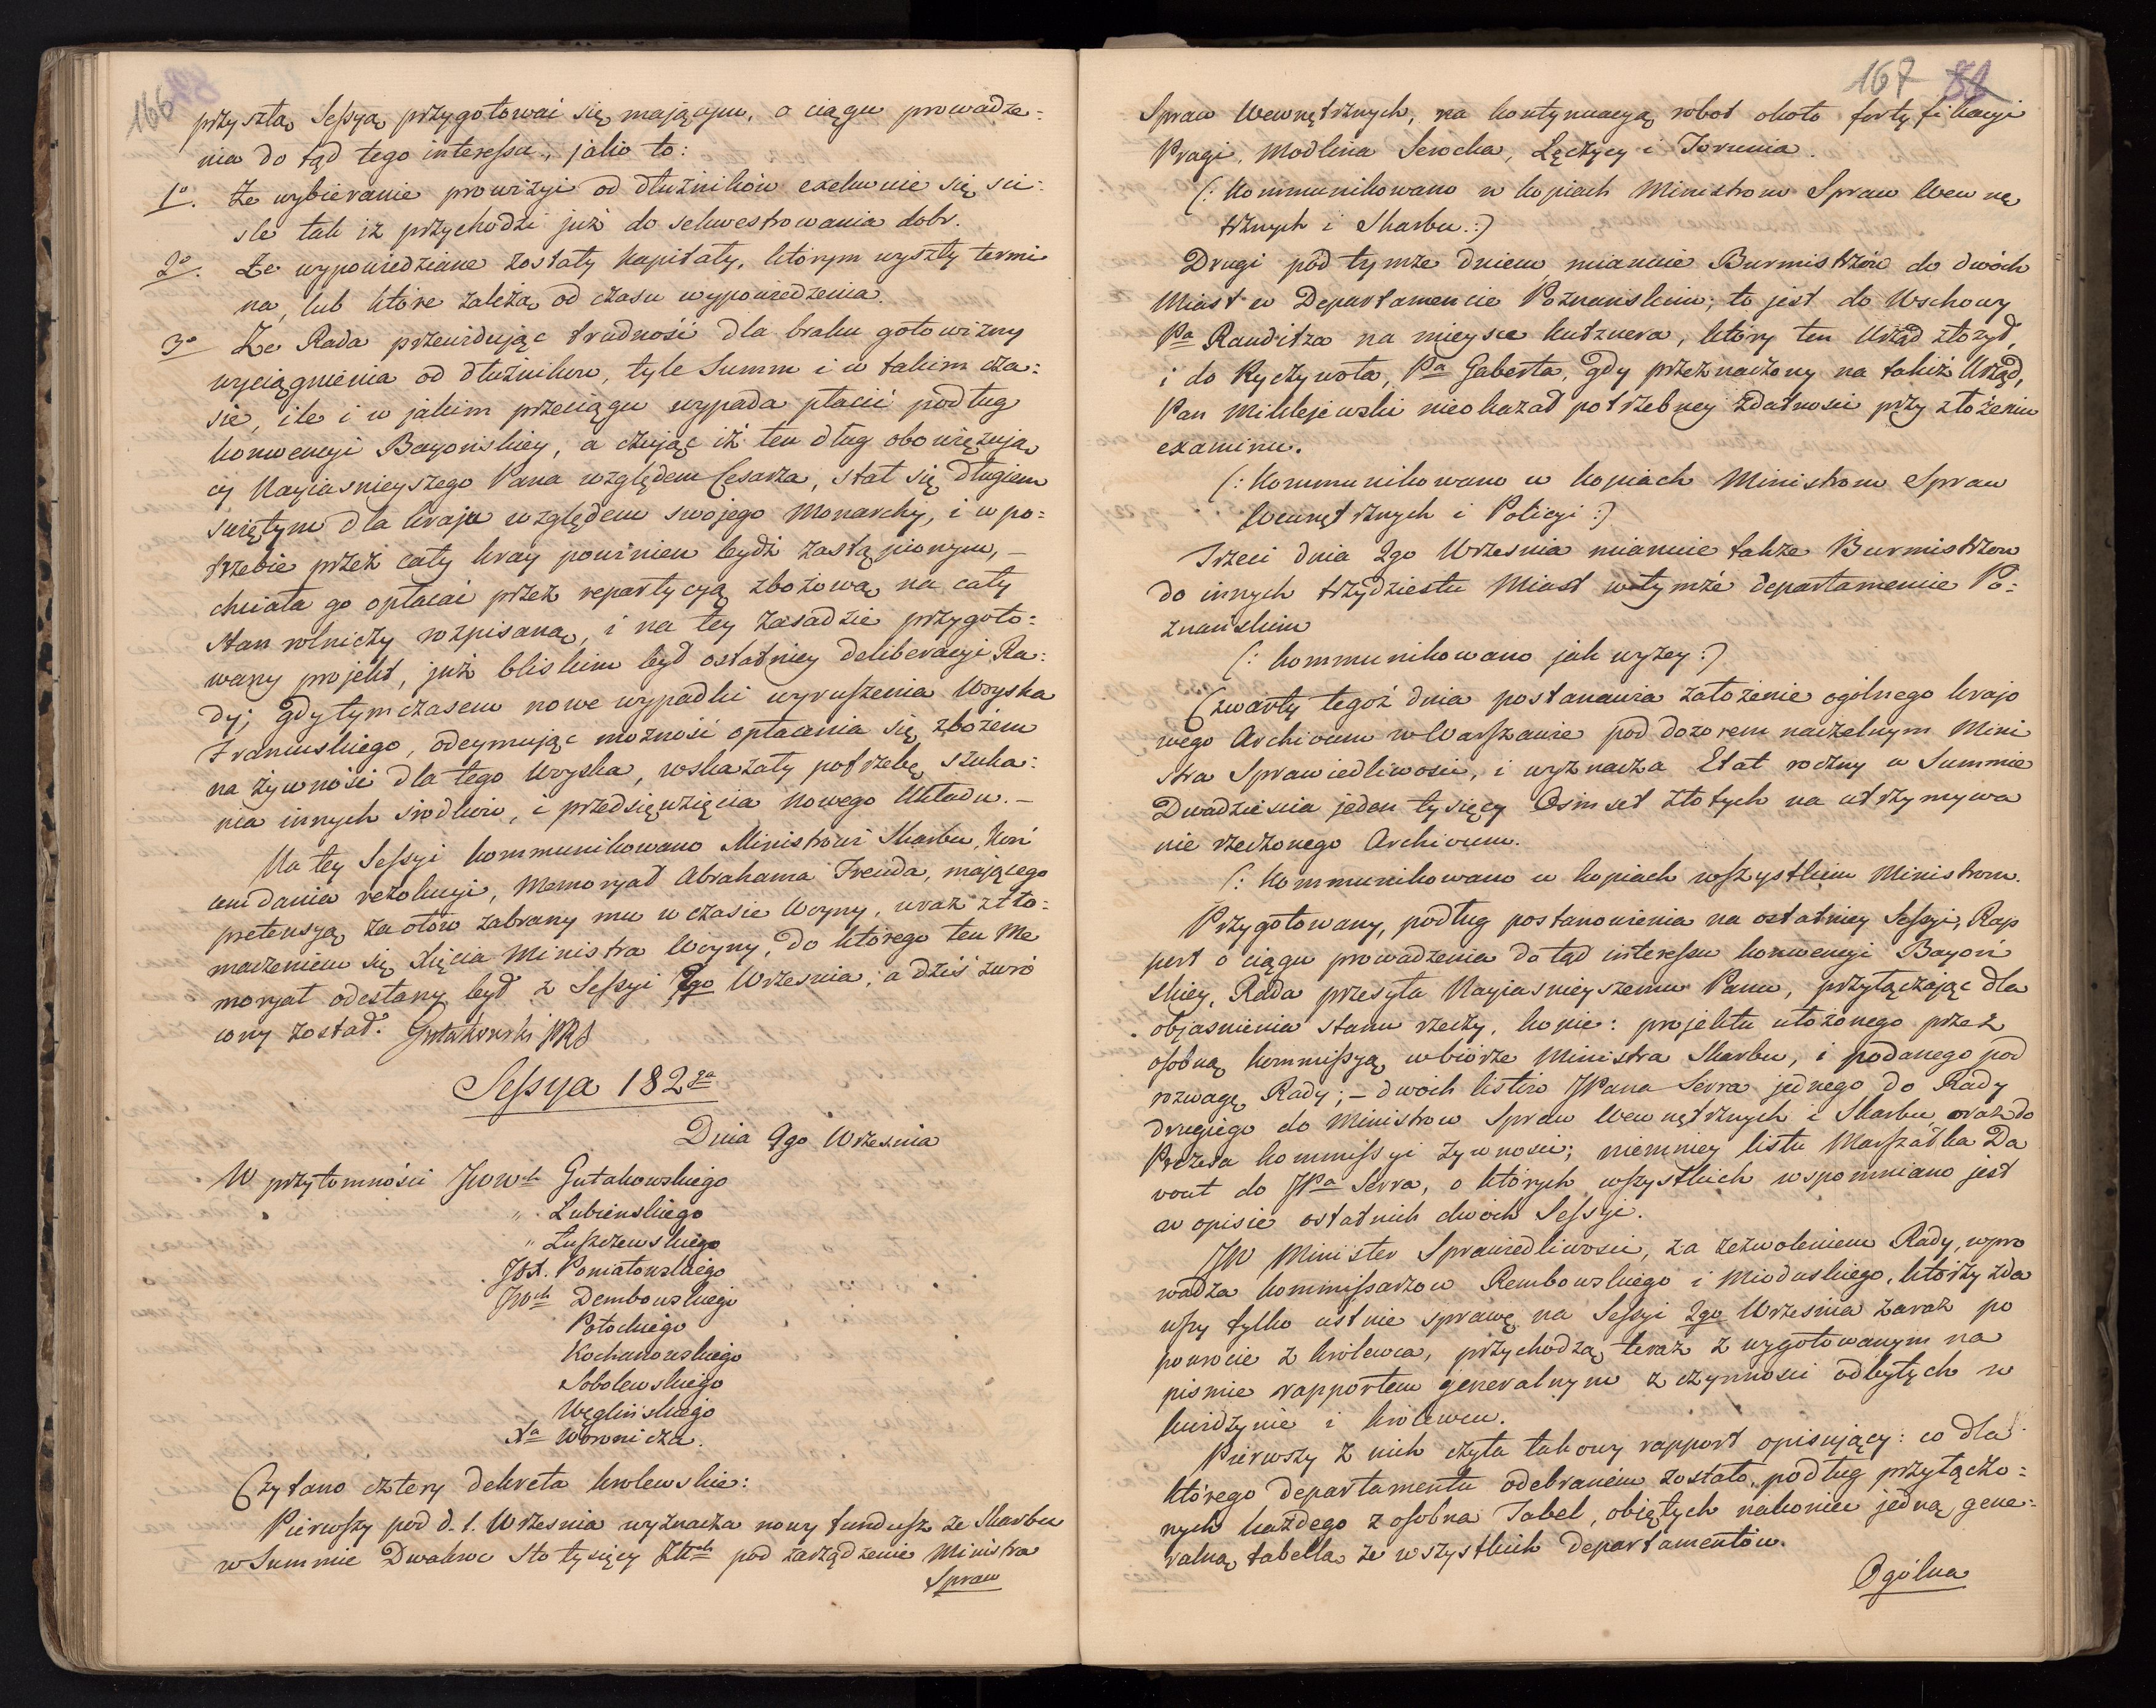 166
przyszłą Sessyą przygotować się mającym, o ciągu prowadze=
nia do tąd tego interessu, jako to:
1o. Że wybieranie prowizyi od dłużników exekwuie się ści=
sle tak iż przychodzi już do sekwestrowania dobr.
2o. Że wypowiedziane zostały kapitały, którym wyszły termi
na, lub które zależą od czasu wypowiedzenia.
3o Że Rada przewidując trudność dla braku gotowizny
wyciągnienia od dłużników, tyle Summ i w takim cza=
sie, ile i w jakim przeciągu wypada płacić podług
konwencyi Bayońskiey, a czując iż ten dług obowięzują
cy Nayiasnieyszego Pana względem Cesarza, stał się długiem
świętym dla kraju względem swojego Monarchy, i w po=
trzebie przez cały kray powinien bydź zastąpionym, –
chciała go opłacać przez repartycyą zbożową na cały
stan rolniczy rozpisaną, i na tey zasadzie przygoto=
wany projekt, już bliskim był ostatniey deliberacyi Ra=
dy; gdy tymczasem nowe wypadki wyruszenia Woyska
Francuskiego, odeymując możność opłacania się zbożem
na żywność dla tego Woyska, wskazały potrzebę szuka=
nia innych srodków, i przedsięwzięcia nowego Układu. –
Na tey Sessyi kommunikowano Ministrowi Skarbu, koń
cem dania rezolucyi, Memoryał Abrahama Freuda, mającego
pretensyą za ołów zabrany mu w czasie Woyny, wraz z tło=
maczeniem się Xięcia Ministra Woyny, do którego ten Me
moryał odesłany był z Sessyi 2go Września; a dziś zwró
cony został. Gutakowski PRS
Sessya 182ga
Dnia 9go Września
W przytomności JWWch Gutakowskiego
" Lubienskiego
" Łuszczewskiego
JOX. Poniatowskiego
JWch Dembowskiego
Potockiego
Kochanowskiego
Sobolewskiego
Węglińskiego
Xa Woronicza.
Czytano cztery dekreta krolewskie:
Pierwszy pod d. 1. Września wyznacza nowy fundusz ze Skarbu
w Summie Dwakroc Sto tysięcy Złtch pod zarządzenie Ministra
Spraw
167
Spraw Wewnętrznych, na kontynuacyą robot około fortyfikacyi
Pragi, Modlina Serocka, Łęczycy i Torunia.
(: Kommunikowano w kopiach Ministrom Spraw Wewnę
trznych i Skarbu.:)
Drugi pod tymże dniem mianuie Burmistrzów do dwóch
Miast w Departamencie Poznańskim; to jest do Wschowy
Pa Rauditza na mieysce kutznera, który ten Urząd złożył,
i do Ryczywoła, Pa Gaberta, gdy przeznaczony na takiż Urząd,
Pan Miklejewski nieokazał potrzebney zdatności przy złożeniu
examinu.
(: Kommunikowano w kopiach Ministrom Spraw
Wewnętrznych i Policyi :)
Trzeci dnia 2go Września mianuie także Burmistrzow
do innych trzydziestu Miast w tymże departamencie Po=
znanskim
(: kommunikowano jak wyżey :)
Czwarty tegoż dnia postanawia założenie ogólnego krajo
wego Archivum w Warszawie pod dozorem naczelnym Mini
stra Sprawiedliwości, i wyznacza Etat roczny w Summie
Dwadzieścia jeden tysięcy Osimset złotych na utrzymywa
nie rzeczonego Archivum.
(: Kommunikowano w kopiach wszystkim Ministrom.
Przygotowany, podług postanowienia na ostatniey Sessyi, Rap
port o ciągu prowadzenia do tąd interessu konwencyi Bayoń
skiey, Rada przesyła Nayiasnieyszemu Panu, przyłączając dla
objasnienia stanu rzeczy, kopie: projektu ułożonego przez
osobną kommissyą w biórze Ministra Skarbu, i podanego pod
rozwagę Rady; – dwoch listów JPana Serra jednego do Rady
drugiego do Ministrow Spraw Wewnętrznych i Skarbu oraz do
Prezesa kommissyi żywności; niemniey listu Marszałka Da
vout do JPa Serra, o których wszystkich wspomniano jest
w opisie ostatnich dwoch Sessyi.
JW Minister Sprawiedliwości, za zezwoleniem Rady, wpro
wadza kommissarzow Rembowskiego i Mioduskiego, którzy zda
wszy tylko ustnie sprawę na Sessyi 2go Września zaraz po
powrocie z krolewca, przychodzą teraz z wygotowanym na
pismie rapportem generalnym z czynności odbytych w
kwidzynie i krolewcu.
Pierwszy z nich czyta takowy rapport opisujący: co dla
którego departamentu odebranem zostało, podług przyłączo=
nych każdego z osobna Tabel, obiętych nakoniec jedną gene=
ralną tabellą ze wszystkich departamentów.
Ogólna